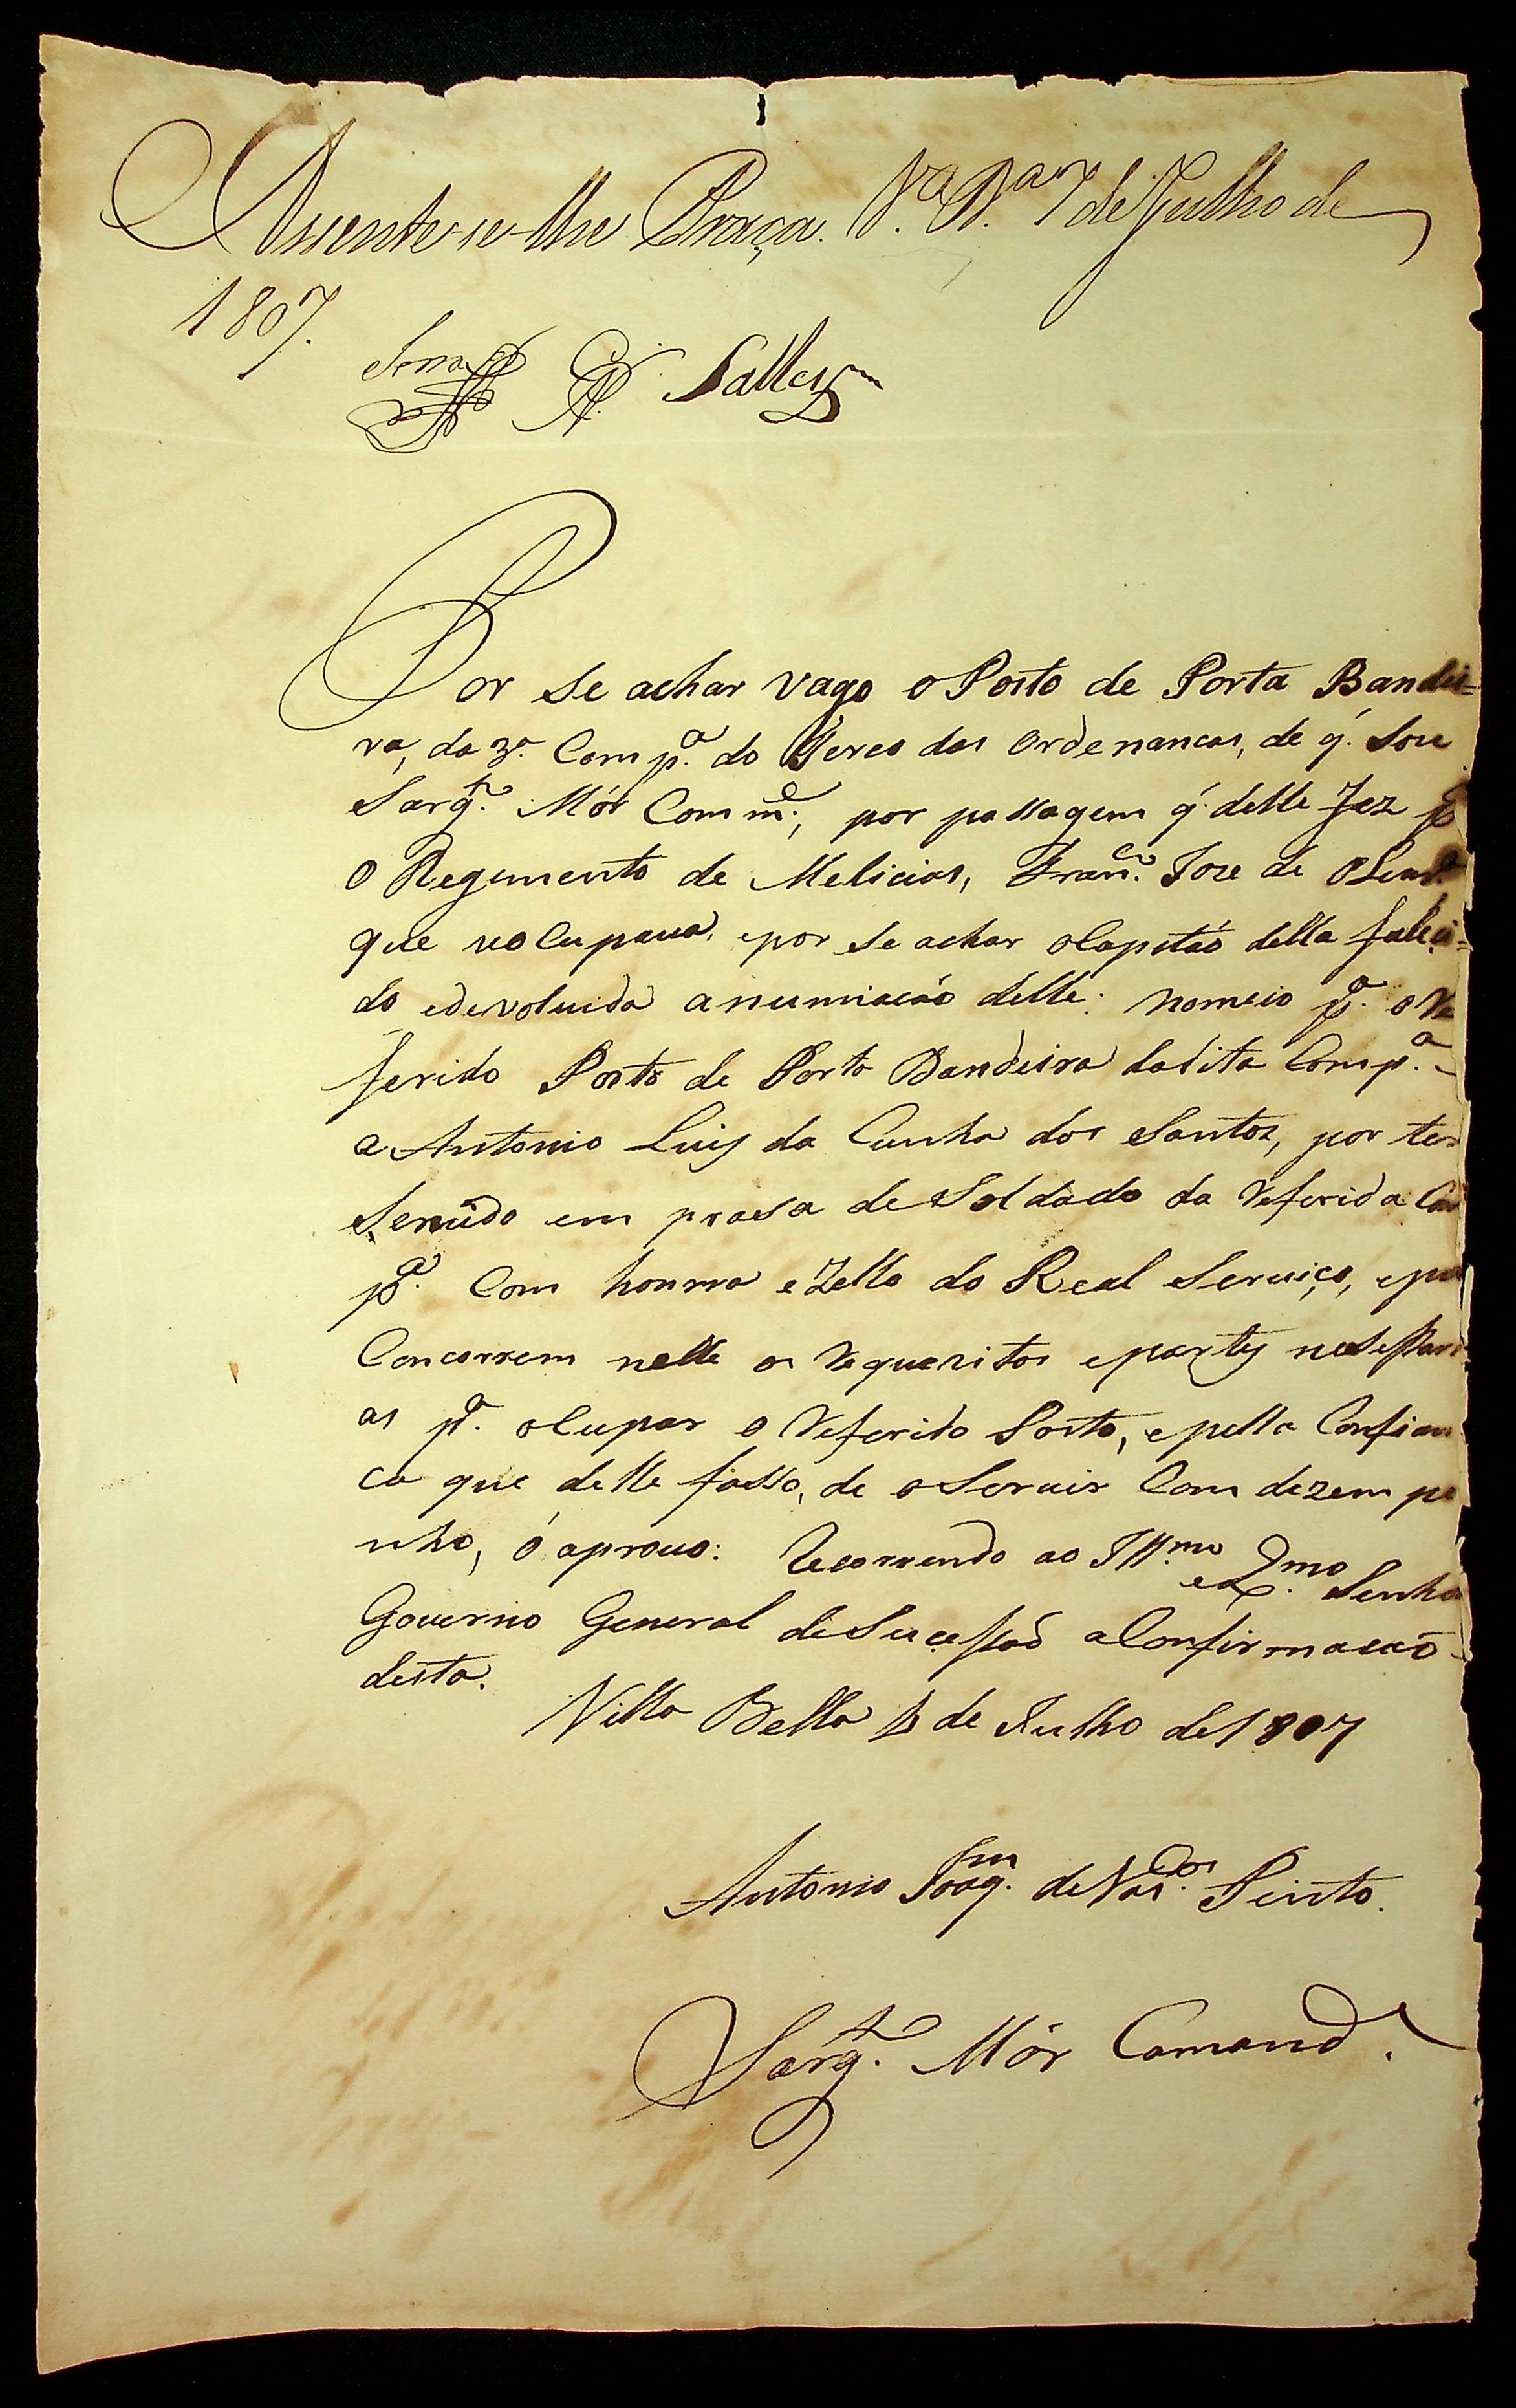 Assente-se-lhe Praça. V.ª B.ª 7 de Julho de
1807.
Salles
Por se achar vago o Posto de Porta Bandei=
ra, da 3.ª Comp.ª do Terço das Ordenancas, de q. Sou
Sarg.to Mór Com.e, por passagem q. delle fez p.ª
o Regimento de Melicias, Fran.co Joze de
que o Cupaua, e por se achar o Capitaõ della faleci=
do e devoluida a numiacáo delle: nomeio p.ª o Re
ferido Posto de Porta Bandeira da dita Comp.ª
a Antonio Luiz da Cunha dos Santos, por ter
seruido em prasa de Soldado da Referida Com
p.ª Com honrra e Zello do Real Seruiço, e por
Concorrem nelle os Requezitos e partes nesessari
as p.ª oCupar o Referido Posto, e pella Confian
ca que delle fasso, de o Seruir Com dezem pe
nho, ó aprouo: Recorrendo ao Ill.mo e Ex.mo Senhor
Governo General de Sucessaõ a Confirmacaõ
desta.
Villa Bella de Julho de 1807
Antonio Joaq.m de Vas.cos Pinto.
Sarg.to Mór Comand.e